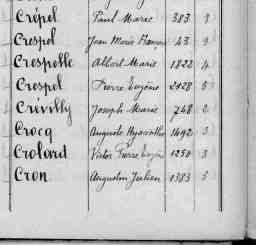 Crépel Paul Marie 383 3
Crespel Jean Marie François 43 3
Crespelle Albert Marie 1822 4
Crespel Pierre Eugène 2128 5
Crévilly Joseph Marie 748 2
Crocq Auguste Hyacinthe 1492 3
Crolard Victor Pierre Eugène 1250 3
Cron Augustin Julien 1383 5